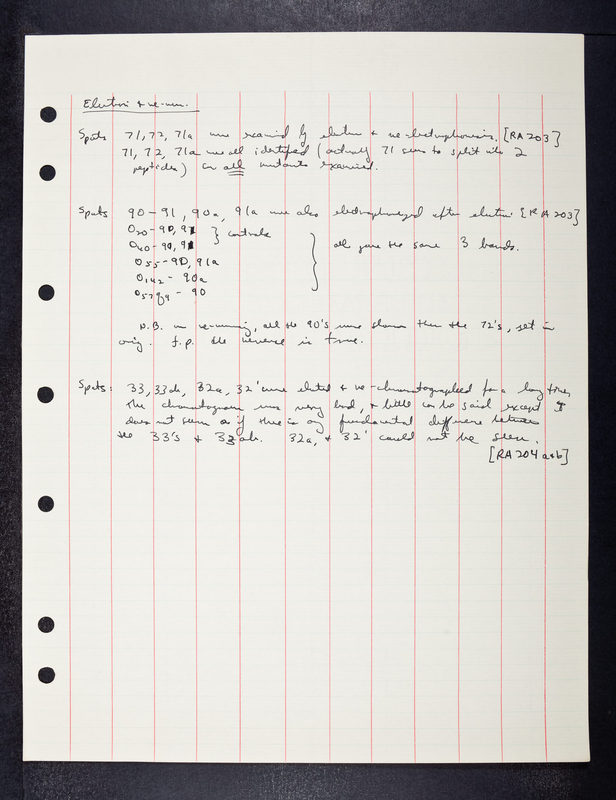 Elution & re-run.
Spots 71, 72, 71a were examined by elution & re-electrophoresis. [RA203]
71, 72, 71a were all identified (actually 71 seems to split into 2
peptides) in all mutants examined.
Spots 90-91, 90a, 91a were also electrophoresed after elution [RA203]
O20-90, 91 } controls
O40-90, 91 all gave the same 3 bands.
O55-90, 91a
O142-90a
- 90
N.B. in re-running, all the 90's were slower than the 72's, yet in
orig. f.p. the reverse is true.
Spots: 33, 33ab, 32a, 32' were eluted & re-chromatographed for a long time,
The chromatogram was very bad, & little can be said except it
does not seem as if there is any fundamental difference between
the 33's & 33ab. 32a, & 32' could not be seen.
[RA204 a+b]